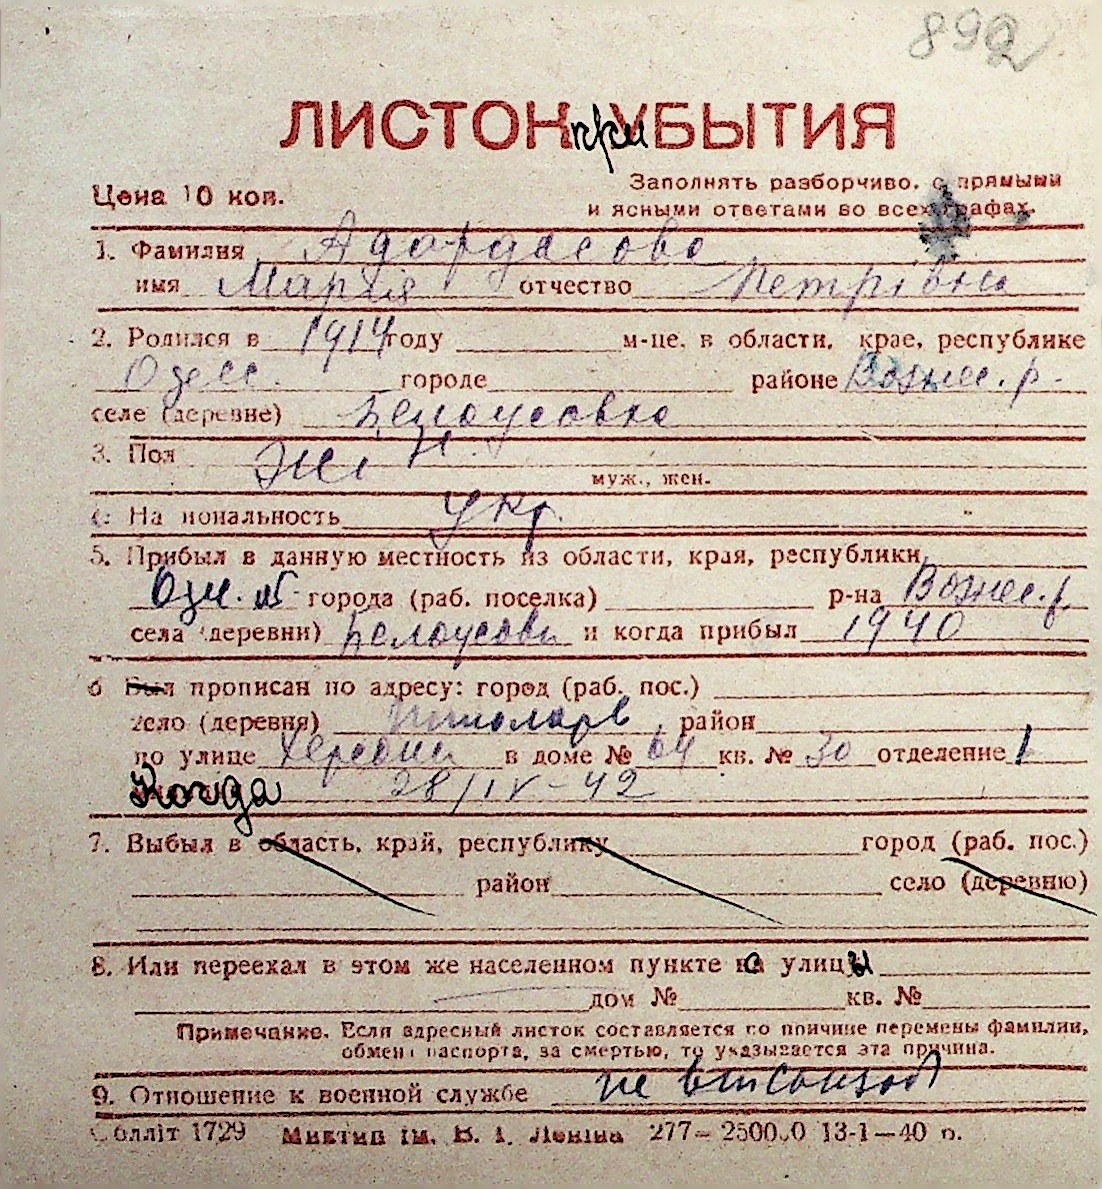 892
ЛИСТОК при УБЫТИЯ
Цена 10 коп.
Заполнять разборчиво, с прямыми
и ясными ответами во всех графах.
1. Фамилия
имя Марія отчество Петрівна
2. Родился в 1914 году м-це, в области, крае, республике
Одесс. городе районе Вознес. р.
селе (деревне) Белоусовка
3. Пол Жін.
муж., жен.
На иональность Укр.
5. Прибыл в данную местность из области, края, республики,
города (раб. поселка) р-на Вознес. р.
села (деревни) Белоусовки и когда прибыл 1940
6 Был прописан по адресу: город (раб. пос.)
село (деревня) район
по улице в доме № 64 кв. № 30 отделение 1
Когда 28/IV-42
7. Выбыл в область, край, республику город (раб. пос.)
район село (деревню)
8. Или переехал в этом же населенном пункте с улицы
дом № кв. №
Примечание. Если адресный листок составляется по причине перемены фамилии,
обмена паспорта, за смертью, то указывается эта причина.
9. Отношение к военной службе не
облліт 1729 Миктип ім. В. І. Леніна 277— 13-1—40 р.